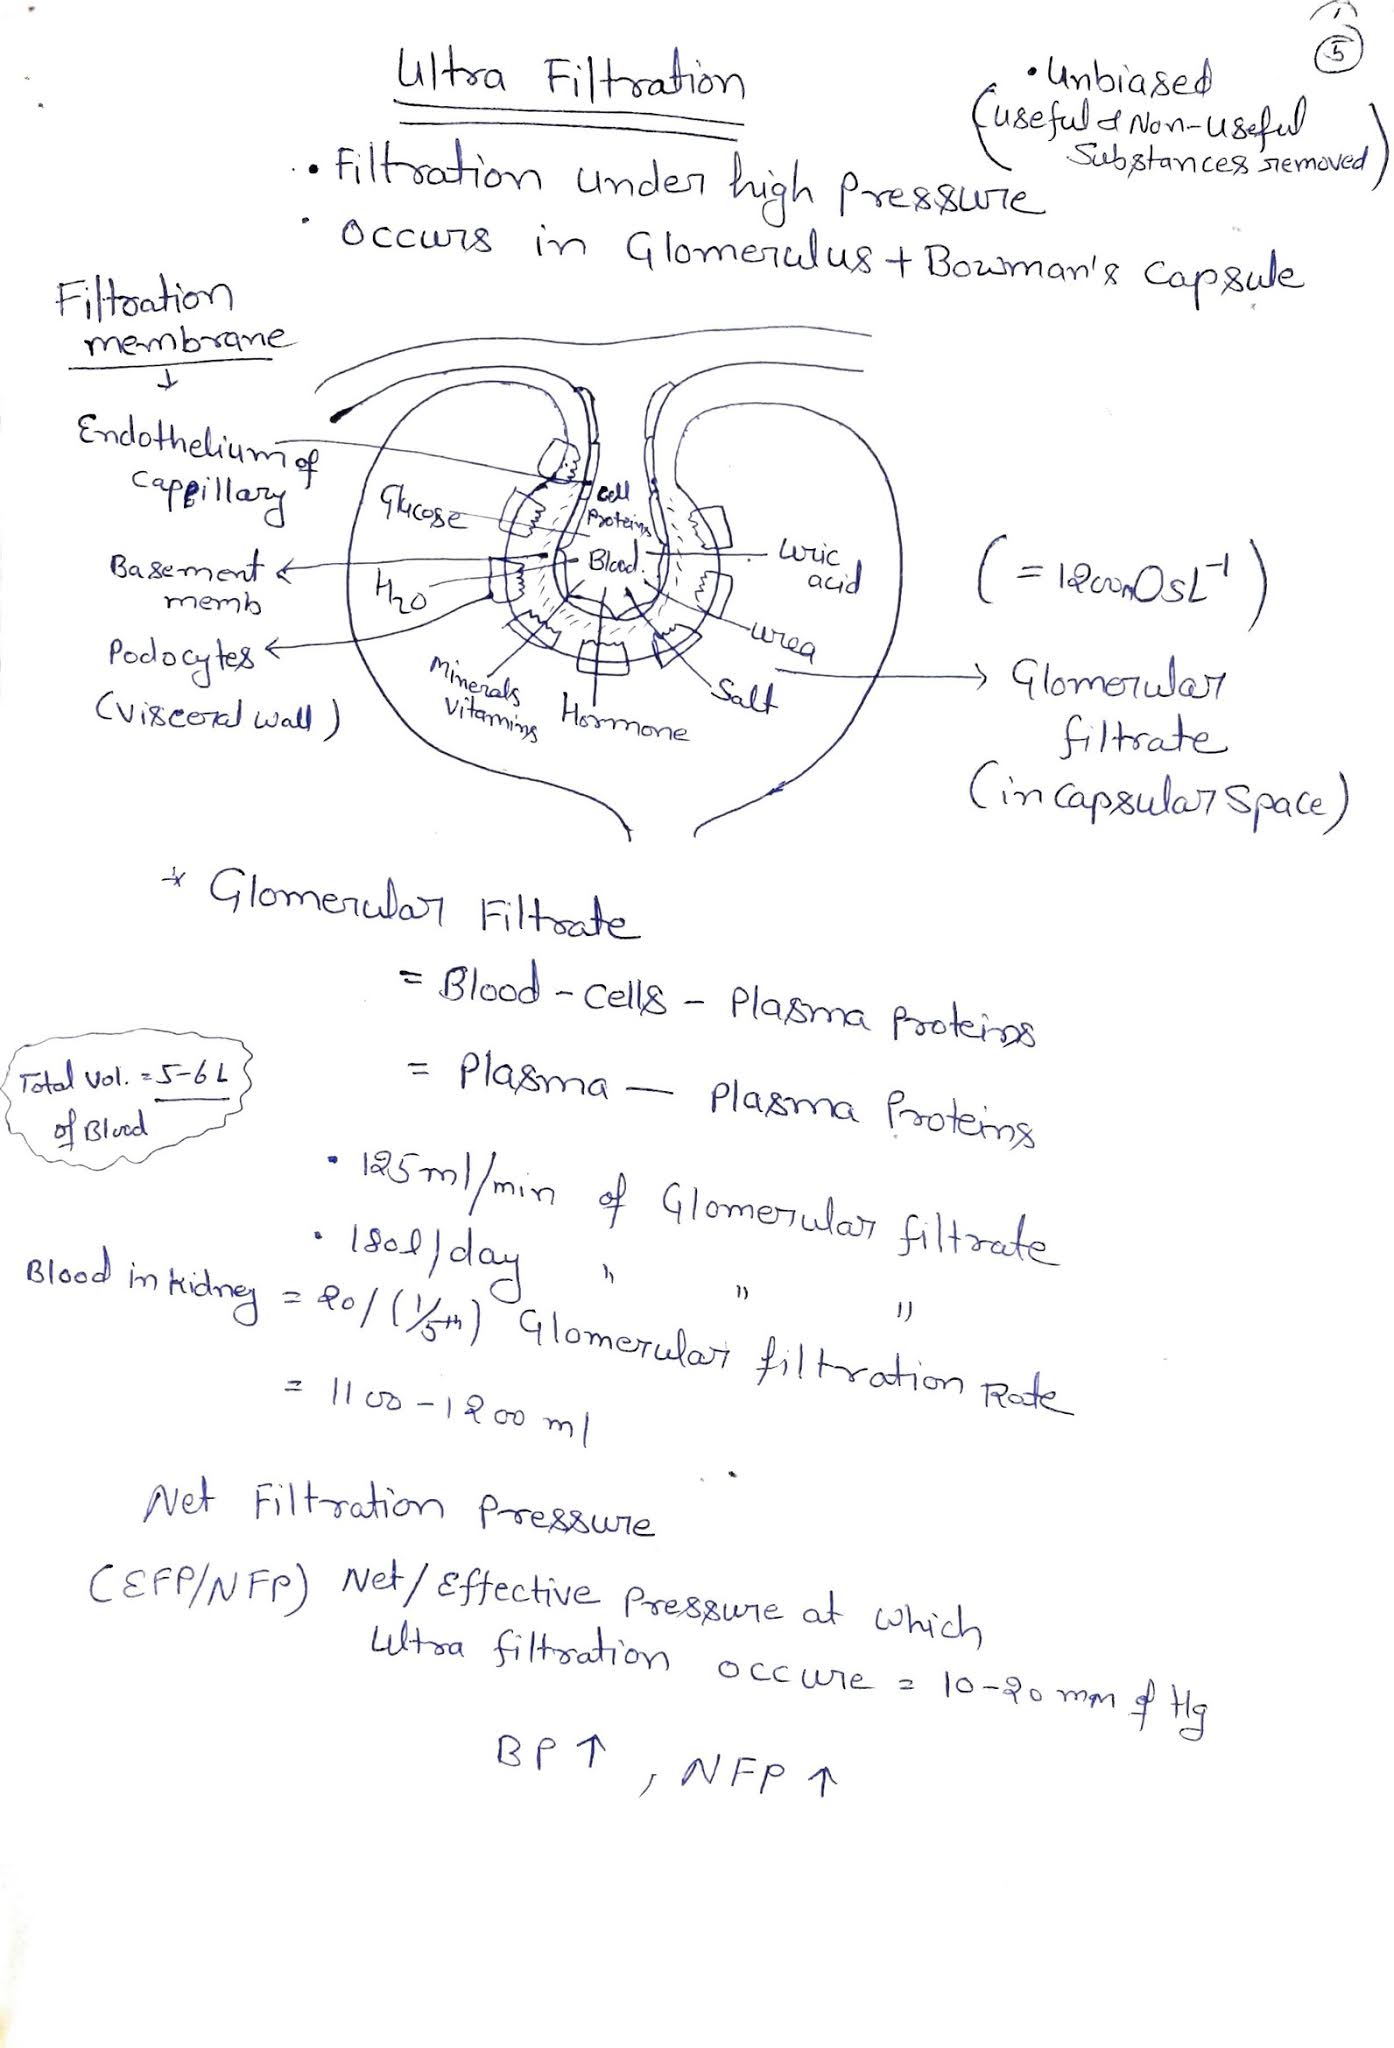 5
Ultra Filtration
• Unbiased
(useful & Non-useful
Substances removed)
• Filtration under high Pressure
• occurs in Glomerulus + Bowman's Capsule
Filtration
membrane
↓
Endothelium of
Cappillary
Glucose
Cell
Proteins
Blood.
Uric
acid
(= 1200mOsL⁻¹)
Basement
memb
H2O
Urea
Podocytes
(visceral wall)
Minerals
Vitamins
Hormone
Salt
→ Glomerular
filtrate
(in Capsular Space)
* Glomerular Filtrate
= Blood - cells - Plasma Proteins
= Plasma — Plasma Proteins
Total Vol. = 5-6 L
of Blood
• 125 ml/min of Glomerular filtrate
• 180l/day " " "
Blood in kidney = 20/(1/5th) Glomerular filtration Rate
= 1100-1200 ml
Net Filtration Pressure
(EFP/NFP) Net/Effective Pressure at which
Ultra filtration occure = 10-20 mm of Hg
BP ↑, NFP ↑